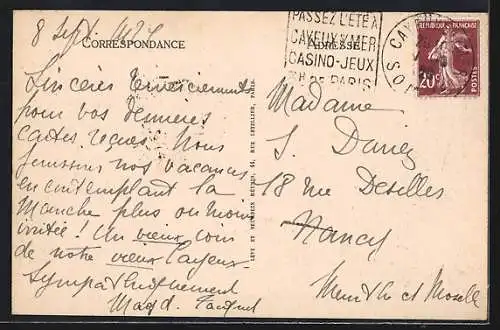 8 Sept.
CORRESPONDANCE
ADRESSE
PASSEZ L'ETE A
CAYEUX S/MER
CASINO-JEUX
DE PARIS
CAYEUX
SO
REPUBLIQUE FRANCAISE
20c
POSTES
Sincères remerciements
pour vos dernières
cartes reçues. Nous
finissons nos vacances
en contemplant la
Manche plus ou moins
irritée! Un vieux coin
de notre vieux Cayeux.
Sympathiquement
Magd.
LEVY ET NEURDEIN REUNIS, 44, RUE LETELLIER, PARIS
Madame
S.
18 rue Deselles
Nancy
Meurthe et Moselle